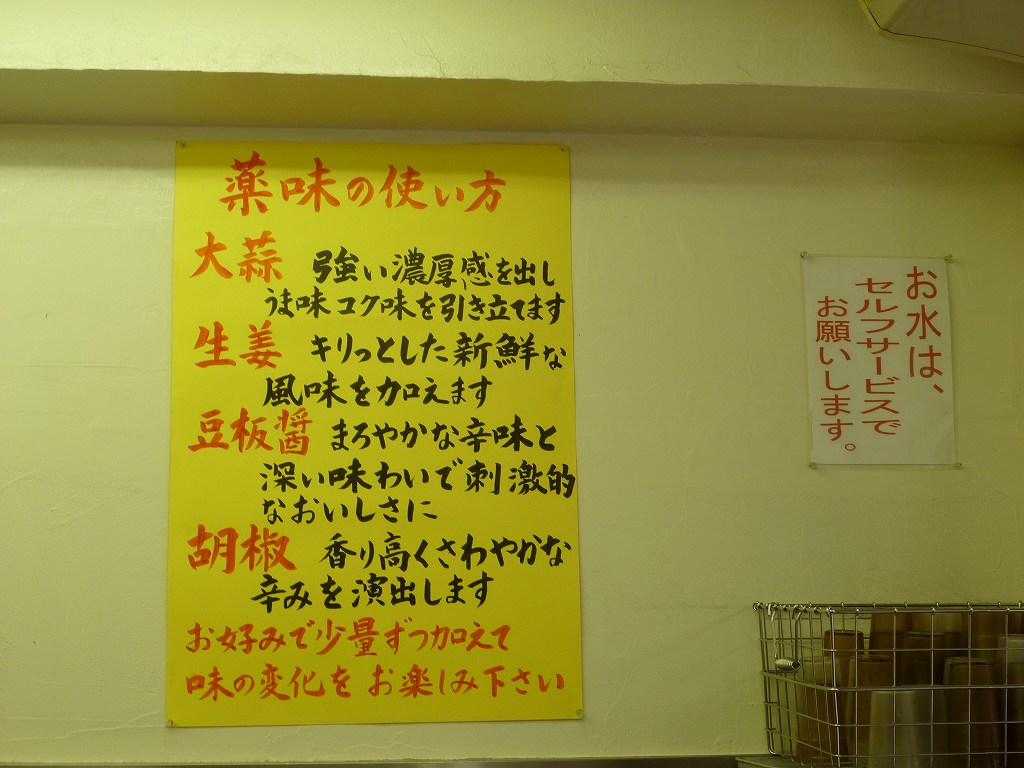 薬味の使い方
大蒜 強い濃厚感を出し
うま味コク味を引き立てます
生姜 キリっとした新鮮な
風味を加えます
豆板醤 まろやかな辛味と
深い味わいで刺激的
なおいしさに
胡椒 香り高くさわやかな
辛みを演出します
お好みで少量ずつ加えて
味の変化をお楽しみ下さい
お水は、
セルフサービスで
お願いします。